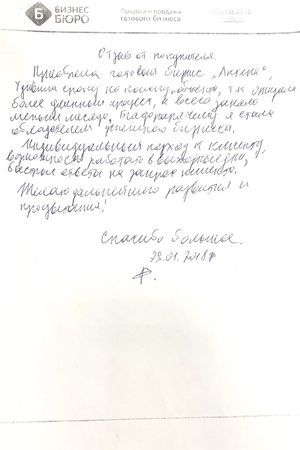 БИЗНЕС
БЮРО
Покупка и продажа
готового бизнеса
Отзыв от покупателя.
Приобрела готовый бизнес „Аптека“,
сделку, т.к ожидала
более длинный процесс, а всего заняло
меньше месяца, Благодаря чему я стала
обладателем успешного бизнеса.
Индивидуальный подход к клиенту,
возможность работать в выходные дни,
быстрые ответы на запрос клиента.
Желаю дальнейшего развития и
процветания!
Спасибо большое.
29.01.2018г